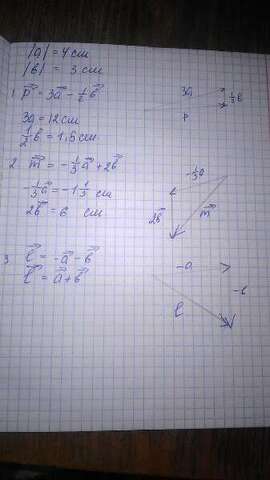 |a| = 4 см
|b| = 3 см
1 p⃗ = 3a⃗ - ½ b⃗
3a = 12 см
½ b = 1,5 см
3a
½ b
p
2 m⃗ = -⅓ a⃗ + 2b⃗
-⅓ a⃗ = -1⅓ см
2b⃗ = 6 см
-⅓ a
2b⃗
m⃗
3 l⃗ = -a⃗ - b⃗
l⃗ = a⃗ + b⃗
-a
-b
l